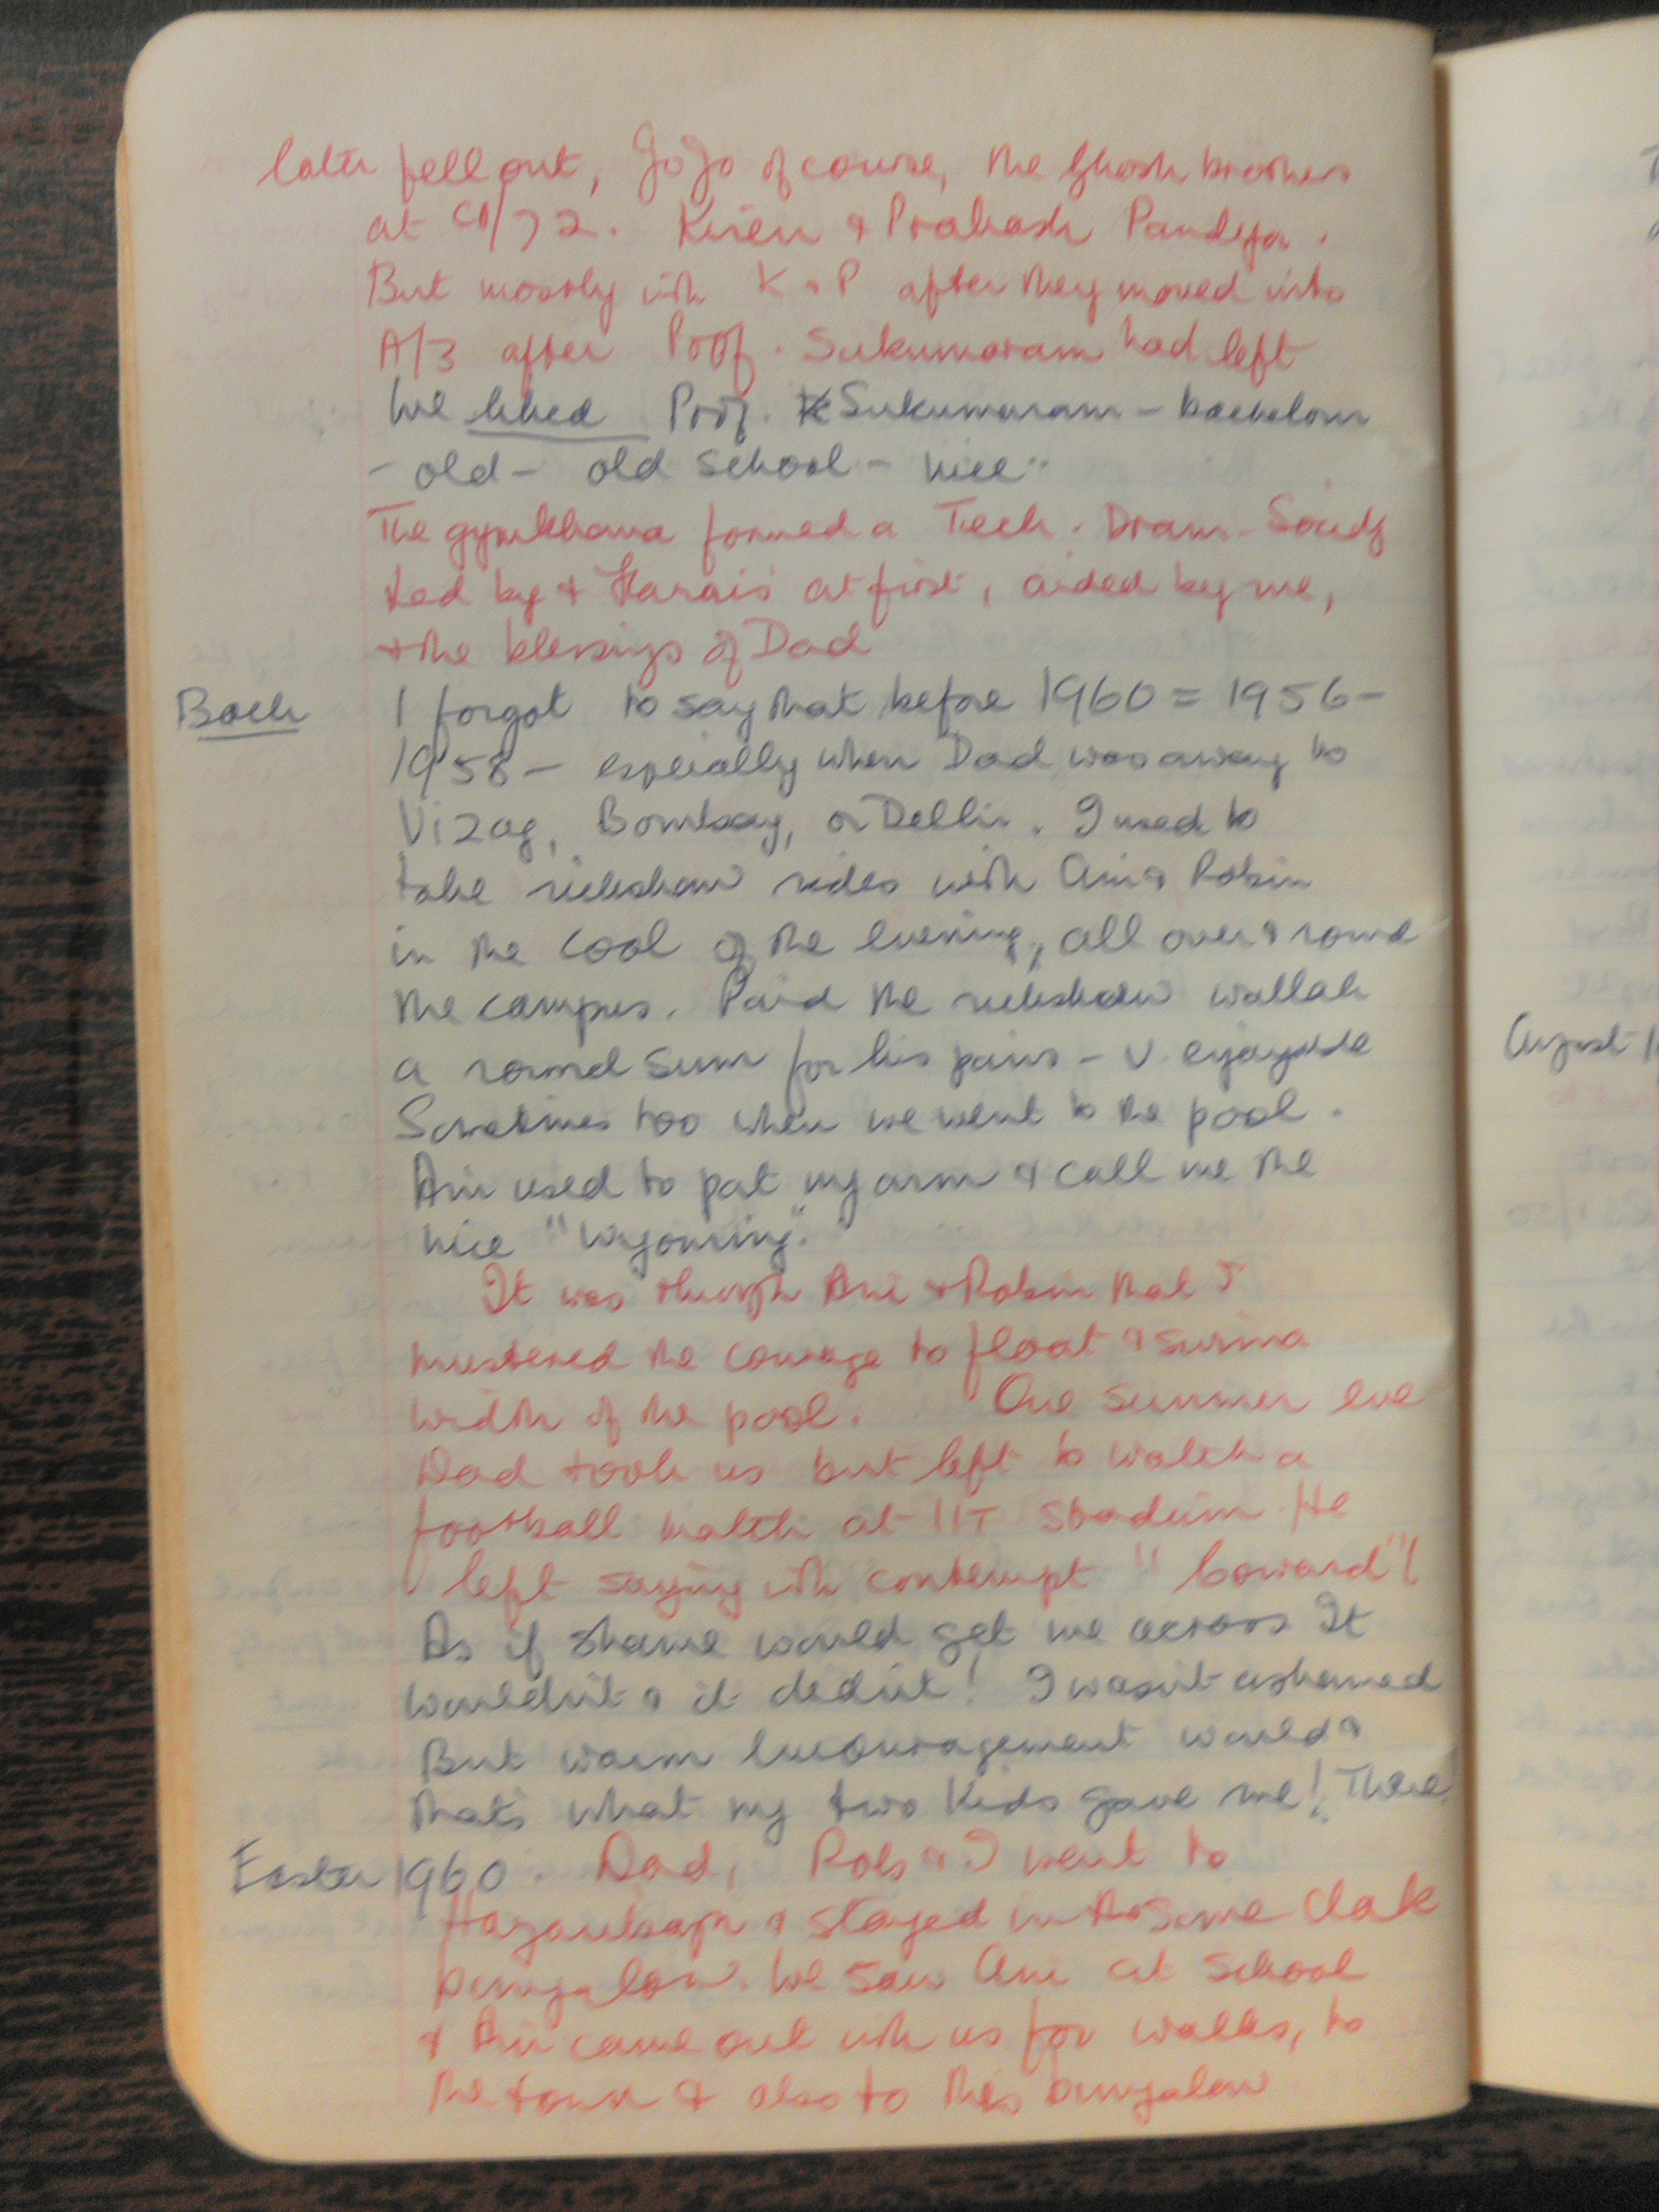 later fell out, JoJo of course, the Ghosh brothers
at C1/72. Kiren & Prakash Pandya.
But mostly with K & P after they moved into
A/3 after Prof. Sukumaram had left
We liked Prof. Sukumaram - bachelour
- old - old school - nice
The gymkhana formed a Tech. Dram. Society
led by at first, aided by me,
& the blessings of Dad
Back I forgot to say that before 1960 = 1956 -
1958 - especially when Dad was away to
Vizag, Bombay, or Delhi. I used to
take rickshaw rides with Ani & Robin
in the cool of the evening, all over & round
the campus. Paid the rickshaw wallah
a round sum for his pains -
Sometimes too when we went to the pool.
Ani used to pat my arm & call me the
nice "Wyoming."
It was through Ani & Robin that I
mustered the courage to float & swim a
width of the pool. One summer eve
Dad took us but left to watch a
football match at IIT Stadium. He
left saying with contempt "Coward"!
As if shame would get me across It
wouldn't & it didn't! I wasn't ashamed
But warm encouragement would &
that's what my two kids gave me! There
Easter 1960. Dad, Rob & I went to
Hazaribagh & stayed in the same Dak
bungalow. We saw Ani at school
& Ani came out with us for walks, to
the town & also to this bungalow
August